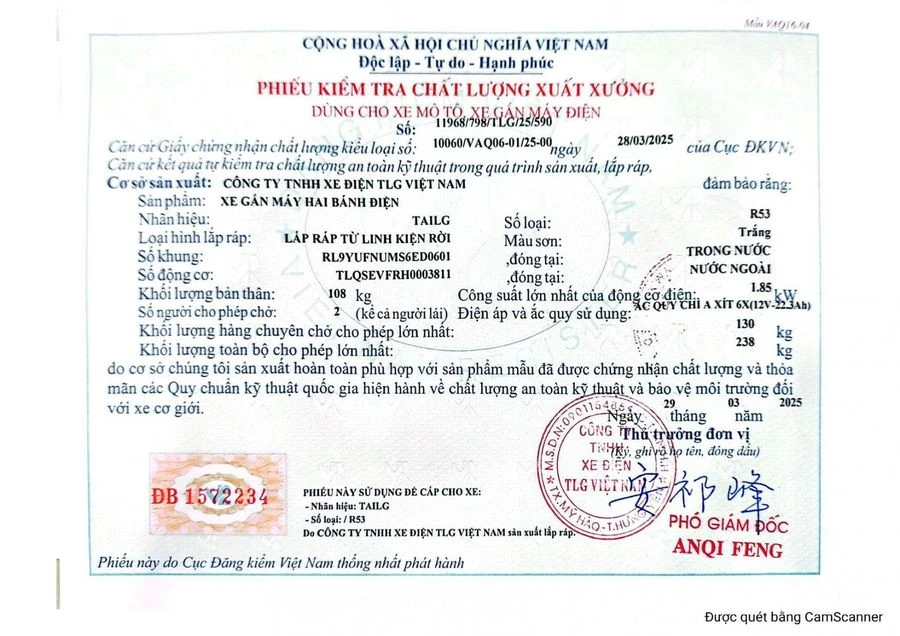 Mẫu VAQ16-04
CỘNG HOÀ XÃ HỘI CHỦ NGHĨA VIỆT NAM
Độc lập - Tự do - Hạnh phúc
PHIẾU KIỂM TRA CHẤT LƯỢNG XUẤT XƯỞNG
DÙNG CHO XE MÔ TÔ, XE GẮN MÁY ĐIỆN
Số: 11968/798/TLG/25/590
Căn cứ Giấy chứng nhận chất lượng kiểu loại số: 10060/VAQ06-01/25-00 ngày 28/03/2025 của Cục ĐKVN;
Căn cứ kết quả tự kiểm tra chất lượng an toàn kỹ thuật trong quá trình sản xuất, lắp ráp,
Cơ sở sản xuất: CÔNG TY TNHH XE ĐIỆN TLG VIỆT NAM đảm bảo rằng:
Sản phẩm: XE GẮN MÁY HAI BÁNH ĐIỆN
Nhãn hiệu: TAILG Số loại: R53
Loại hình lắp ráp: LẮP RÁP TỪ LINH KIỆN RỜI Màu sơn: Trắng
Số khung: RL9YUFNUMS6ED0601 ,đóng tại: TRONG NƯỚC
Số động cơ: TLQSEVFRH0003811 ,đóng tại: NƯỚC NGOÀI
Khối lượng bản thân: 108 kg Công suất lớn nhất của động cơ điện: 1.85 kW
Số người cho phép chở: 2 (kể cả người lái) Điện áp và ắc quy sử dụng: ẮC QUY CHÌ A XÍT 6X(12V-22.3Ah)
Khối lượng hàng chuyên chở cho phép lớn nhất: 130 kg
Khối lượng toàn bộ cho phép lớn nhất: 238 kg
do cơ sở chúng tôi sản xuất hoàn toàn phù hợp với sản phẩm mẫu đã được chứng nhận chất lượng và thỏa
mãn các Quy chuẩn kỹ thuật quốc gia hiện hành về chất lượng an toàn kỹ thuật và bảo vệ môi trường đối
với xe cơ giới.
Ngày 29 tháng 03 năm 2025
Thủ trưởng đơn vị
(Ký, ghi rõ họ tên, đóng dấu)
CÔNG TY
TNHH
XE ĐIỆN
TLG VIỆT NAM
安祁峰
PHÓ GIÁM ĐỐC
ANQI FENG
ĐB 1572234
PHIẾU NÀY SỬ DỤNG ĐỂ CẤP CHO XE:
- Nhãn hiệu: TAILG
- Số loại: / R53
Do CÔNG TY TNHH XE ĐIỆN TLG VIỆT NAM sản xuất lắp ráp.
Phiếu này do Cục Đăng kiểm Việt Nam thống nhất phát hành
Được quét bằng CamScanner